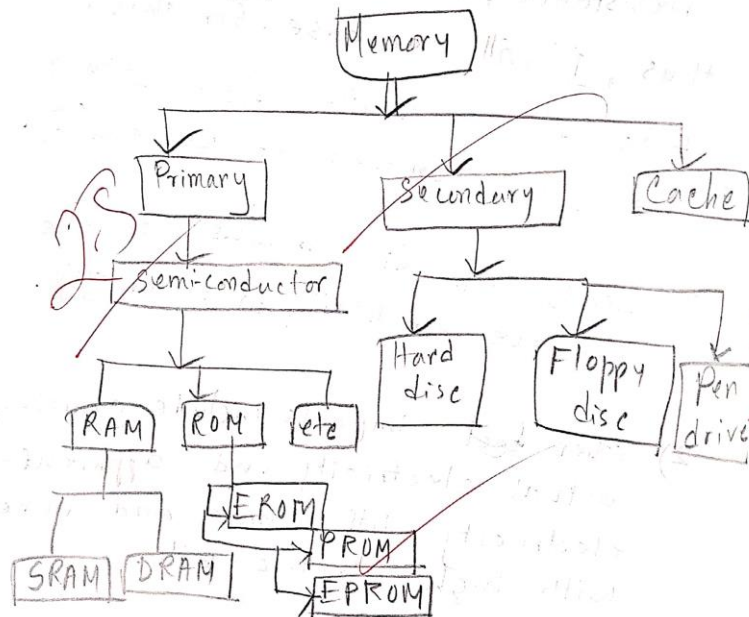 Memory
Primary
Secondary
Cache
Semi-conductor
Hard
disc
Floppy
disc
Pen
drive
RAM
ROM
etc
EROM
PROM
EPROM
SRAM
DRAM
2.5